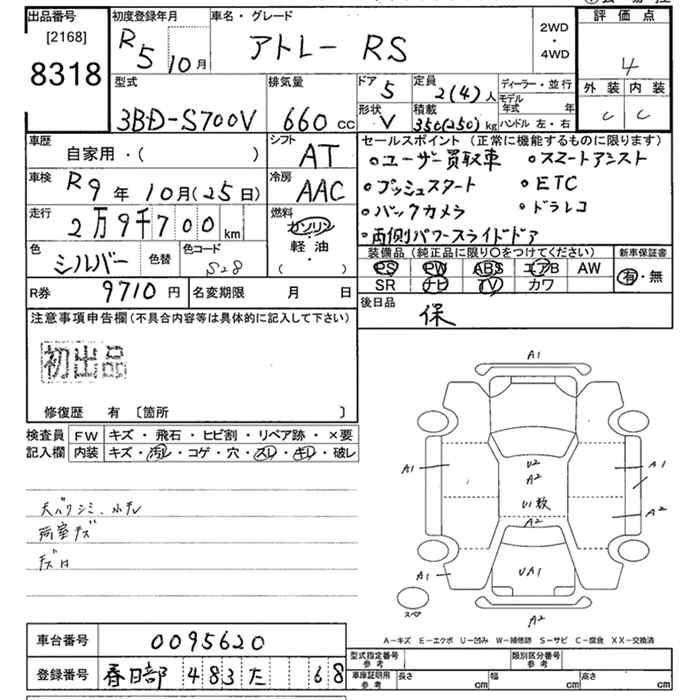 出品番号
[2168]
8318
初度登録年月
R5 10月
車名・グレード
アトレー RS
2WD
・
4WD
評価点
4
外装 内装
C C
型式
3BD-S700V
排気量
660 cc
ドア 5
形状 V
定員 2(4)人
積載 350(250)kg
ディーラー・並行
モデル年式 年
ハンドル 左・右
車歴
自家用・( )
シフト
AT
車検
R9年10月(25日)
冷房
AAC
走行
2万9千700km
燃料
ガソリン
軽・油
( )
色
シルバー
色替
色コード
S28
セールスポイント(正常に機能するものに限ります)
○ユーザー買取車 ○スマートアシスト
○プッシュスタート ○ETC
○バックカメラ ○ドラレコ
○両側パワースライドドア
装備品(純正品に限り○をつけてください)
PS PW ABS エアB AW
SR ナビ TV カワ
新車保証書
有・無
R券 9710円
名変期限 月 日
後日品
保
注意事項申告欄(不具合内容等は具体的に記入して下さい)
初出品
修復歴 有 〔箇所 〕
検査員記入欄
FW キズ・飛石・ヒビ割・リペア跡・×要
内装 キズ・汚レ・コゲ・穴・スレ・キレ・破レ
天バリシミ、
荷室キズ
A1
A1
U2
A2
A1
U1数
A2
A2
A1
UA1
スペア
A2
A-キズ E-エクボ U-凹み W-補修跡 S-サビ C-腐食 XX-交換済
車台番号 0095620
登録番号 春日部 483 た 68
型式指定番号 参考
類別区分番号 参考
車庫証明用 参考
長さ cm 幅 cm 高さ cm